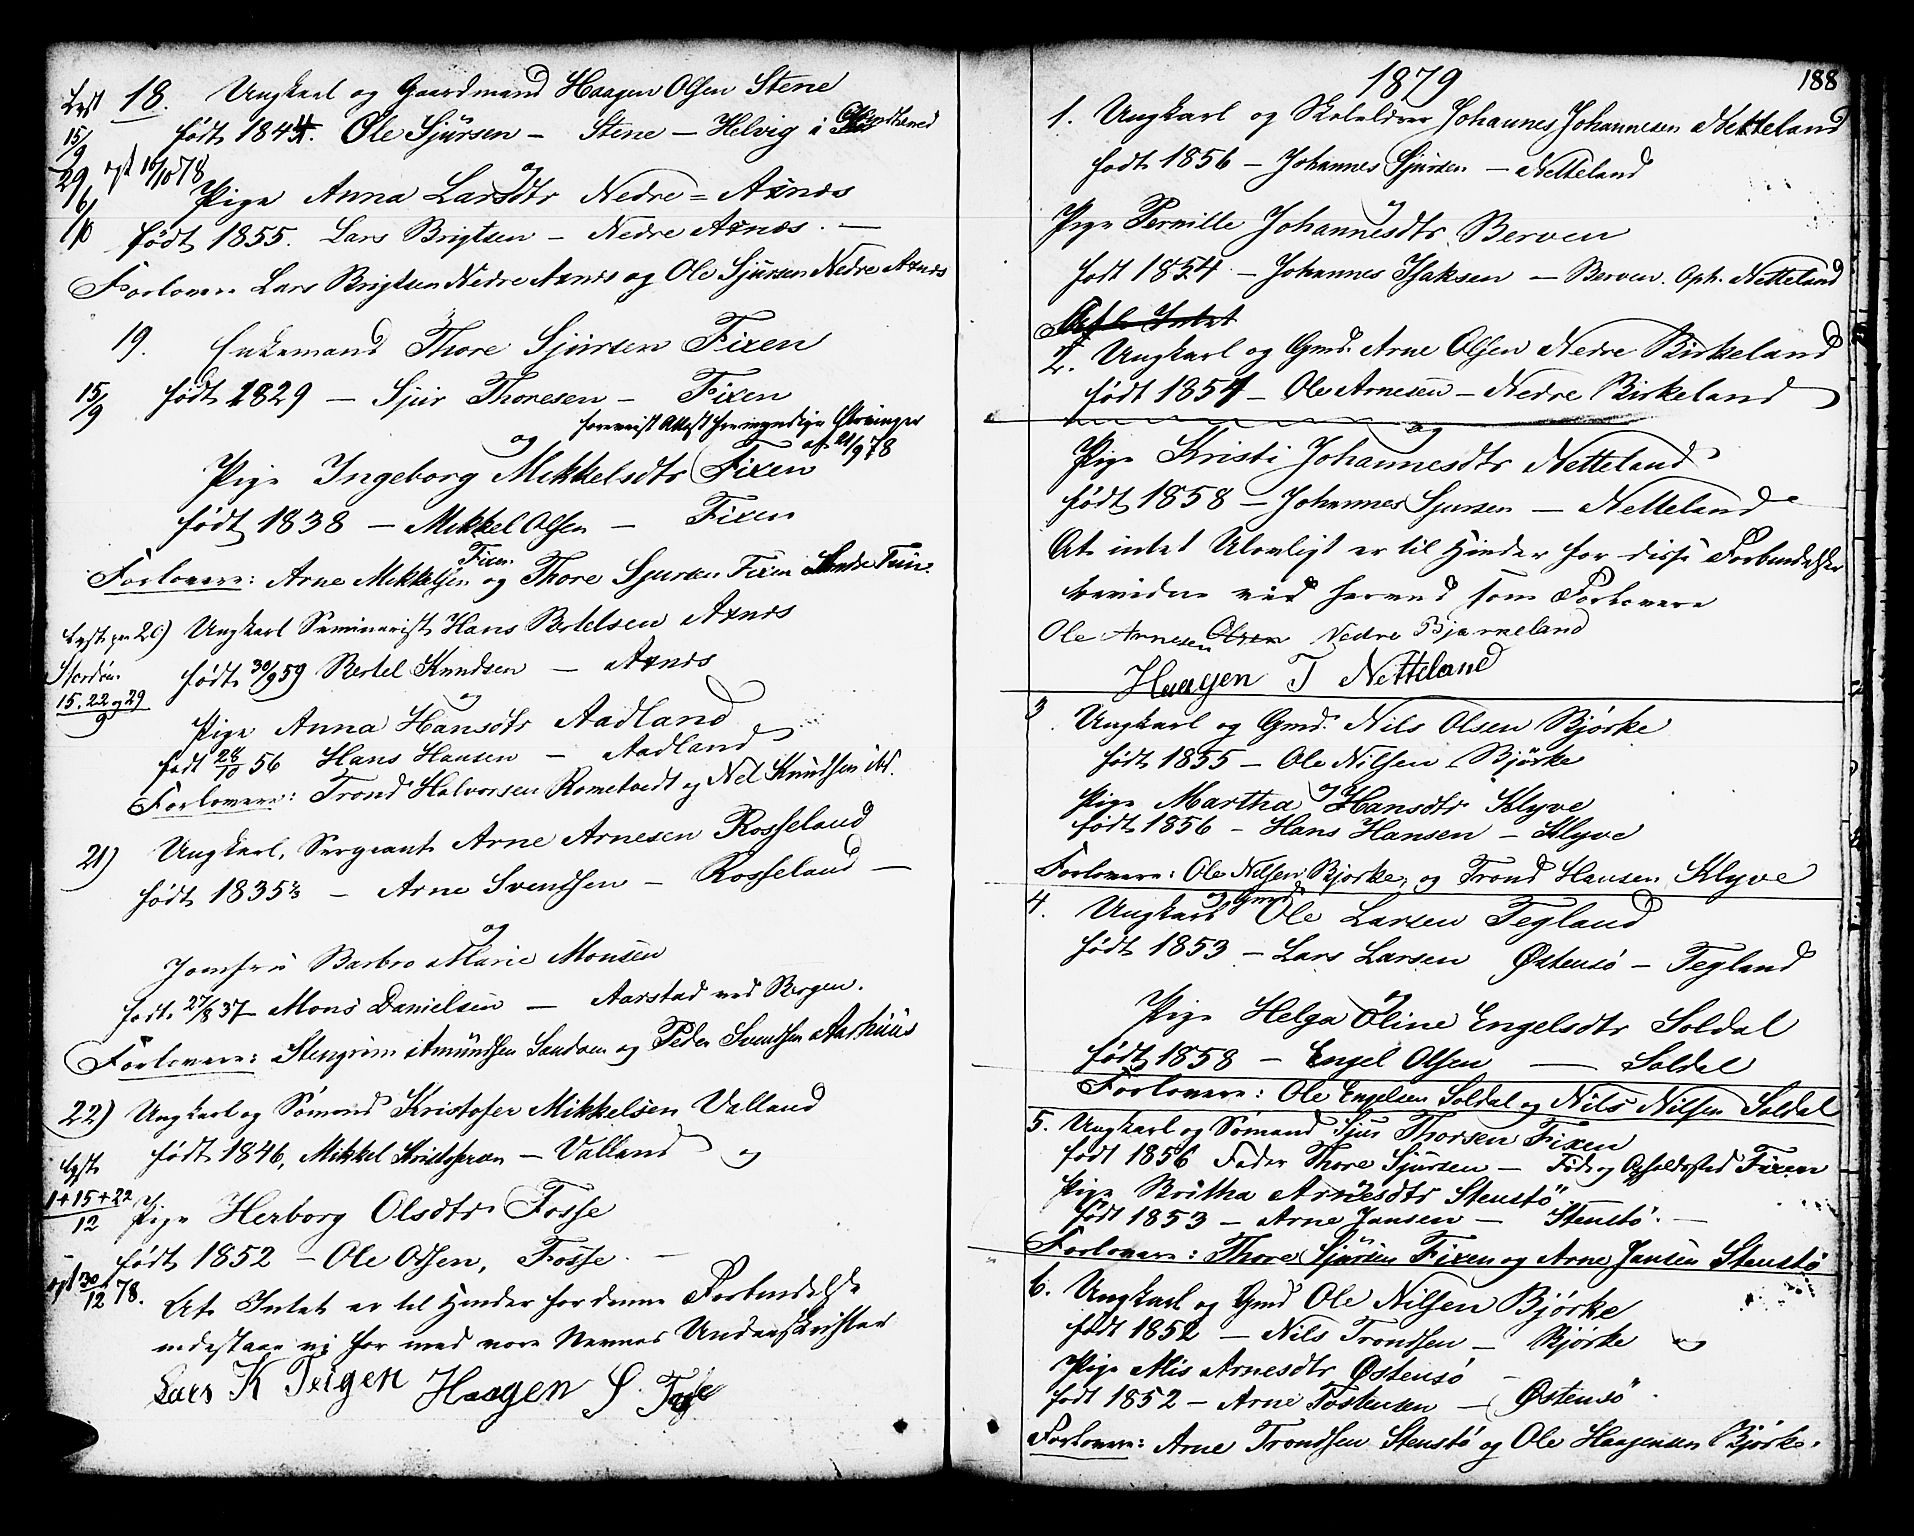 Lyst 18. Ungkarl og Gaardmand Haagen Olsen Stene
15/9 født 1844. Ole Sjursen – Stene – Helvig i
29 ogst 10/10 78 og
6/10 Pige Anna Larsdtr Nedre = Axnes
født 1855. Lars Brigtsen – Nedre Axnes. —
Forlovere Lars Brigtsen Nedre Axnes og Ole Sjursen Nedre Axnes
19. Enkemand Thore Sjursen Fixen
15/9 født 1829 — Sjur Thoresen — Fixen
foreviist Attest
og af 21/9 78
Pige Ingeborg Mikkelsdtr Fixen
født 1838 — Mikkel Olsen — Fixen
Forlovere: Arne Mikkelsen Fixen og Thore Sjursen Fixen
Lyst 20) Ungkarl Seminarist Hans Bertelsen Axnes
født 30/9 59 Bertel Knudsen — Axnes
15. 22 og 29/9 og
Pige Anna Hansdtr Aadland
født 28/10 56 Hans Hansen — Aadland
Forlovere: Trond Halvorsen Rometvedt og Nel Knudsen ibd.
21) Ungkarl, Sergeant Arne Arnesen Rosseland
født 1835 — Arne Svendsen — Rosseland —
og
Jomfru Barbro Marie Monsen
født 27/8 37 Mons Danielsen — Aarstad ved Bergen.
Forlovere: Steingrim Amundsen Sandven og Peder Svendsen Aarhuus
22) Ungkarl og Sømand Kristofer Mikkelsen Valland
født 1846, Mikkel – Valland og
Lyst 1+15+22/12 Pige Herborg Olsdtr Fosse
født 1852 – Ole Olsen, Fosse. —
ogst 30/12 78. At Intet er til Hinder for denne Forbindelse
indestaae vi for med vore Navnes Underskrifter
Lars K Teigen Haagen S. Fosse
1879
188
1. Ungkarl og Skolelærer Johannes Johannesen Netteland
født 1856 — Johannes Sjursen — Netteland
og
Pige Pernille Johannesdtr Berven
født 1854 — Johannes Isaksen — Berven. Oph. Netteland
At Intet
2. Ungkarl og Gmd. Arne Olsen Nedre Birkeland
født 1854 – Ole Arnesen – Nedre Birkeland
og
Pige Kristi Johannesdtr Netteland
født 1858 – Johannes Sjursen — Netteland
At intet Ulovligt er til Hinder for disse Forbindelser
bevidne ved herved som Forlovere
Ole Arnesen Olsen Nedre Bjørneland
Haagen T Netteland
3. Ungkarl og Gmd. Nils Olsen Bjørke
født 1855 — Ole Nilsen Bjørke
og
Pige Martha Hansdtr Klyve
født 1856 – Hans Hansen – Klyve
Forlovere: Ole Nilsen Bjørke, og Trond Hansen Klyve
4. Ungkarl og Gmd Ole Larsen Tegland
født 1853 – Lars Larsen Østensø – Tegland
og
Pige Helga Oline Engelsdtr Soldal
født 1858 — Engel Olsen — Soldal
Forlovere: Ole Engelsen Soldal og Nils Nilsen Soldal
5. Ungkarl og Sømand Sjur Thorsen Fixen
født 1856 Fader Thore Sjursen — Føde og Opholdssted Fixen
og
Pige Britha Arnesdtr Stenstø
født 1853 — Arne Jansen — Stenstø. —
Forlovere: Thore Sjursen Fixen og Arne Jansen Stenstø
6. Ungkarl og Gmd Ole Nilsen Bjørke
født 1852 — Nils Trondsen — Bjørke og
Pige Mis Arnesdtr Østensø
født 1852 – Arne Tostensen — Østensø
Forlovere: Arne Trondsen Stenstø og Ole Haagensen Bjørke.